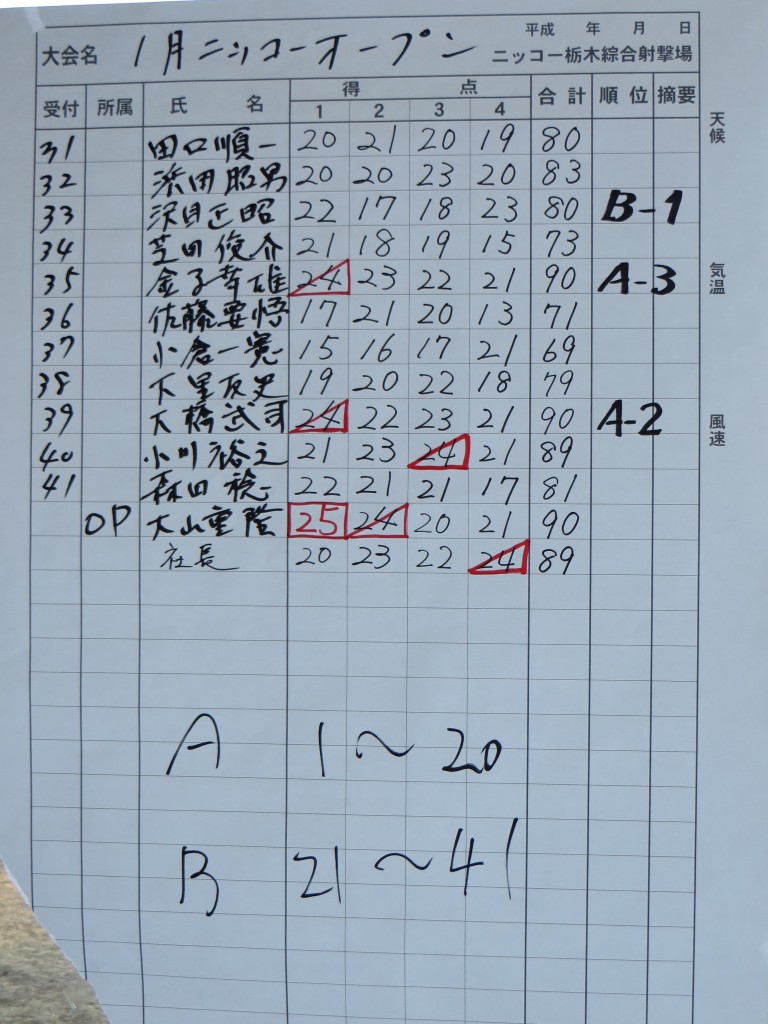 平成 年 月 日
大会名 1月ニッコーオープン ニッコー栃木綜合射撃場
受付 所属 氏 名 得 点 合計 順位 摘要
1 2 3 4
天候
31 田口順一 20 21 20 19 80
32 浜田昭男 20 20 23 20 83
33 沢目正昭 22 17 18 23 80 B-1
34 芝田俊介 21 18 19 15 73
気温
35 金子幸雄 24 23 22 21 90 A-3
36 佐藤要悟 17 21 20 13 71
37 小倉一寛 15 16 17 21 69
38 下里友史 19 20 22 18 79
39 大橋武司 24 22 23 21 90 A-2
風速
40 小川裕之 21 23 24 21 89
41 森田 22 21 21 17 81
OP 大山重隆 25 24 20 21 90
社長 20 23 22 24 89
A 1〜20
B 21〜41